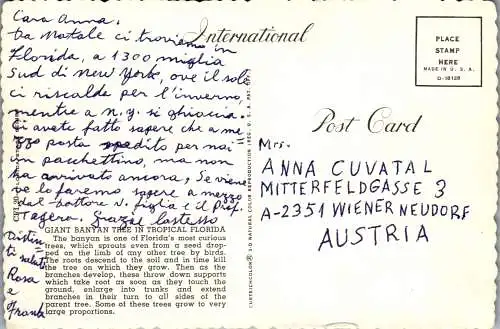 International
Post Card
PLACE
STAMP
HERE
MADE IN U. S. A.
D-18128
Cara Anna,
Da Natale ci troviamo in
Florida, a 1300 miglia
Sud di New York, ove il sole
ci riscalda per l'inverno,
mentre a N.Y. si ghiaccia.
Ci avete fatto sapere che a me-
zzo posta spedito per noi
un pacchettino, ma non
ha arrivato ancora. Se viene
ve lo faremo sapere a mezzo
dal dottore V. figlia e il Prof.
Grazie lo stesso
Distin-
ti saluti
Rosa
e
Frank
Mrs.
ANNA CUVATAL
MITTERFELDGASSE 3
A-2351 WIENER NEUDORF
AUSTRIA
GIANT BANYAN TREE IN TROPICAL FLORIDA
The banyan is one of Florida's most curious
trees, which sprouts even from a seed drop-
ped on the limb of any other tree by birds.
The roots descend to the soil and in time kill
the tree on which they grow. Then as the
branches develop, these throw down supports
which take root as soon as they touch the
ground, enlarge into trunks and extend
branches in their turn to all sides of the
parent tree. Some of these trees grow to very
large proportions.
CURTEICHCOLOR® 3-D NATURAL COLOR REPRODUCTION (REG. U.S. PAT. OFF.)